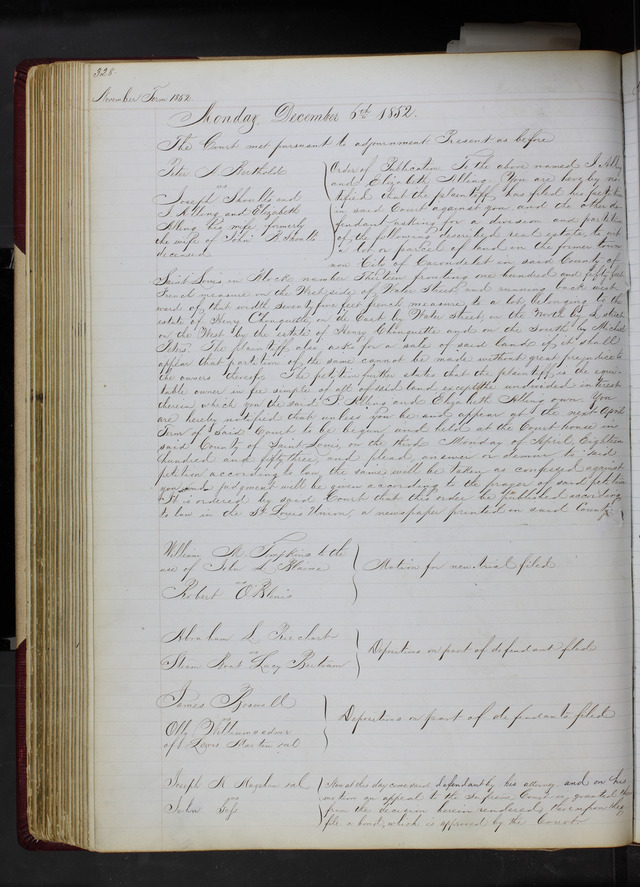 328
November Term 1852.
Monday December 6th 1852.
The Court met pursuant to adjournment Present as before
Peter A. Berthold
vs
Joseph Shoults and
and Elizabeth
his wife formerly
the wife of John R. Shoults
deceased
Order of Publication To the above named
and Elizabeth You are hereby no
tified that the plaintiff has filed his petition
in said Court against you and the other de
fendant asking for a division and partition
of the following described real estate, to wit
a lot or parcel of land in the former town
now City of Carondelet in said County of
Saint Louis in Block number Thirteen fronting one hundred and fifty feet
French measure on the West side of Water Street and running back west
ward of that width seventy five feet french measure to a lot belonging to the
estate of Henry on the East by Water Street, on the North by a street
on the West by the estate of Henry and on the South by Michel
The plaintiff also asks for a sale of said land if it shall
appear that partition of the same cannot be made without great prejudice to
the owners thereof. The petition further states that the plaintiff is the equi
table owner in fee simple of all of said land except the undivided interest
therein which you the said and Elizabeth own. You
are hereby notified that unless you be and appear at the next April
Term of said Court to be begun and held at the Court house in
said County of Saint Louis on the third Monday of April Eighteen
hundred and fifty three and plead, answer or demur to said
petition according to law the same will be taken as confessed against
you and judgment will be given according to the prayer of said petition
it is ordered by said Court that this order be published according
to law in the St Louis Union, a newspaper printed in said County
William M. Tompkins to the
use of John L Blaine
vs
Robert O'Blenis
Motion for new trial filed
Abraham L
vs
Steam Boat Lucy Bertram
Depositions on part of defendant filed
James Boswell
vs
Williams admr
of Lewis Martin
Depositions on part of defendants filed
Joseph
vs
John
Now at this day comes said defendant by his attorney and on his
motion an appeal to the Supreme Court is granted him
from the decision herein rendered, thereupon they
file a bond, which is approved by the Court